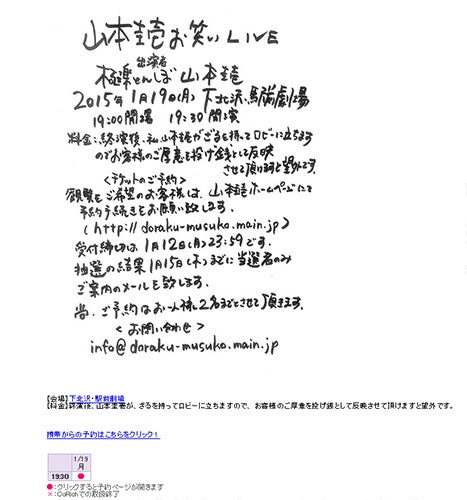 山本圭壱お笑いLIVE
出演者
極楽とんぼ 山本圭壱
2015年1月19日(月) 下北沢,駅前劇場
19:00開場 19:30開演
料金:終演後、私山本圭壱がざるを持ってロビーに立ちます
のでお客様のご厚意を投げ銭として反映
させて頂けますと望外です.
<チケットのご予約>
観覧をご希望のお客様は、山本圭壱ホームページにて
予約手続きをお願い致します.
(http://doraku-musuko.main.jp)
受付締切は1月12日(月)23:59です.
抽選の結果1月15日(木)までに当選者のみ
ご案内のメールを致します.
尚、ご予約はお一人様2名までとさせて頂きます.
<お問い合わせ>
info@doraku-musuko.main.jp
【会場】下北沢・駅前劇場
【料金】終演後、山本圭壱が、ざるを持ってロビーに立ちますので、お客様のご厚意を投げ銭として反映させて頂けますと望外です。
携帯からの予約はこちらをクリック!
1/19
月
19:30 ●
●:クリックすると予約ページが開きます
×:CoRichでの取扱終了